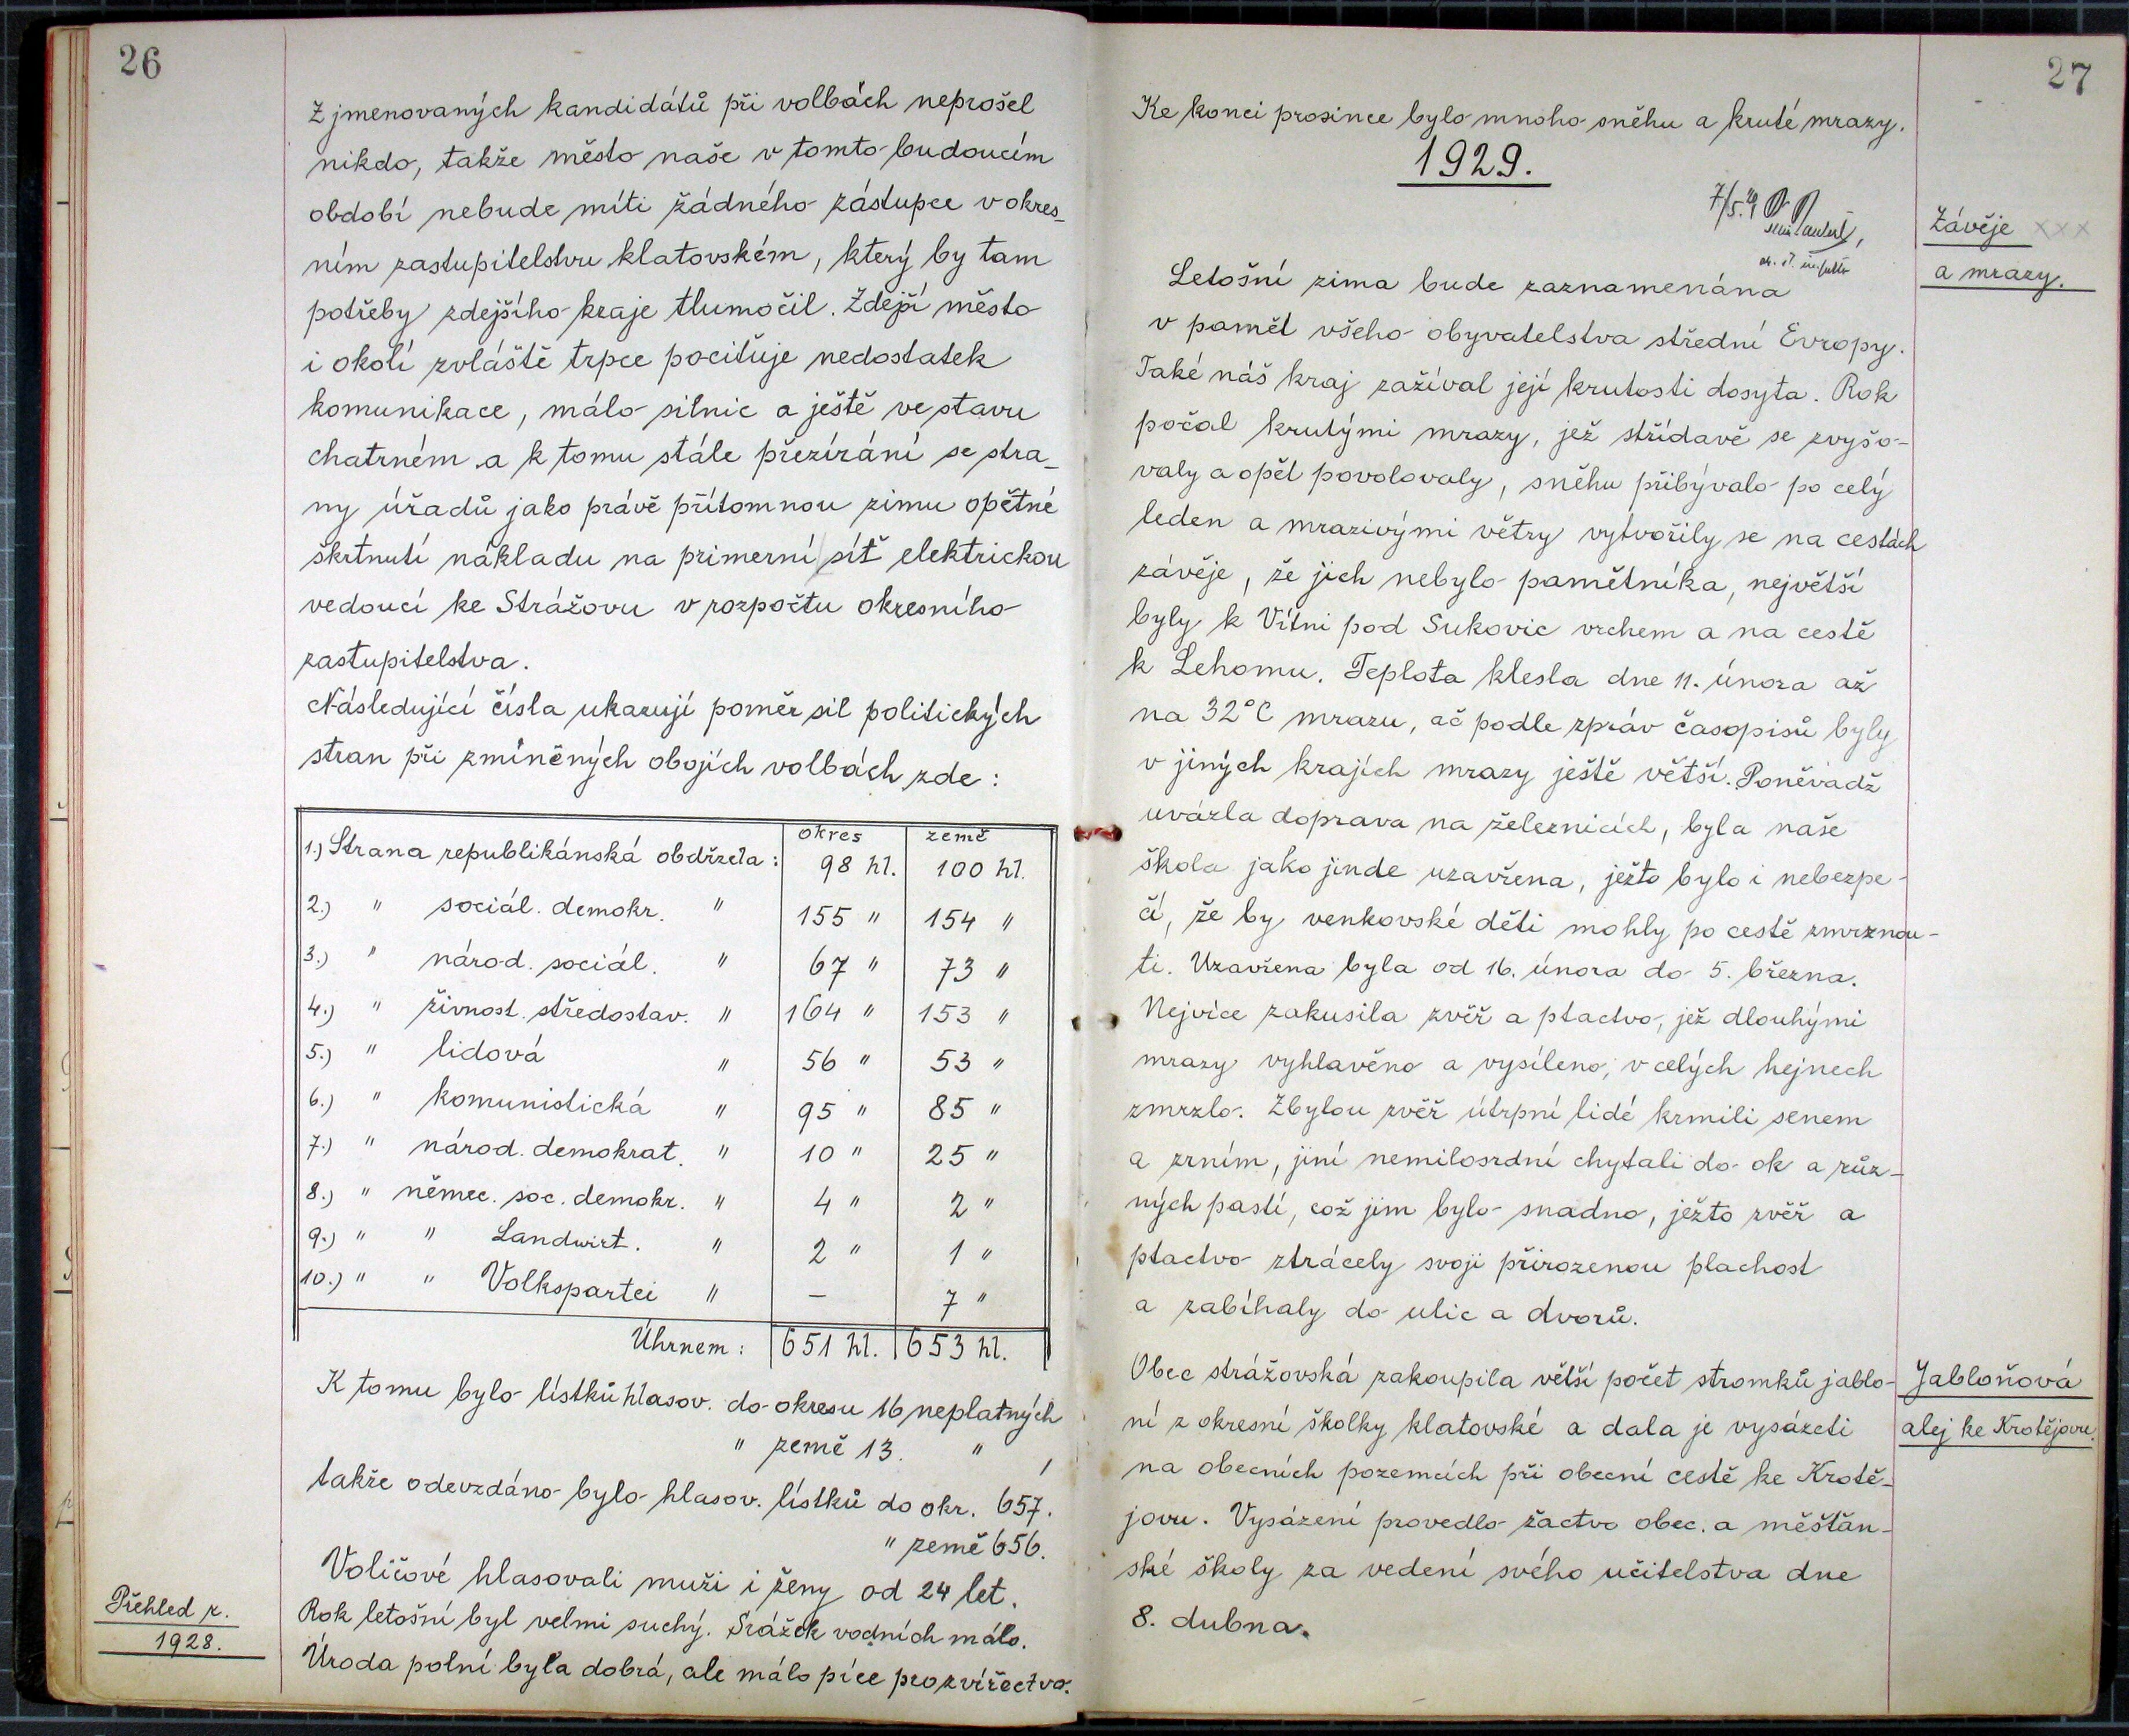 26
Z jmenovaných kandidátů při volbách neprošel
nikdo, takže město naše v tomto budoucím
období nebude míti žádného zástupce v okres-
ním zastupitelstvu klatovském, který by tam
potřeby zdejšího kraje tlumočil. Zdejší město
i okolí zvláště trpce pociťuje nedostatek
komunikace, málo silnic a ještě ve stavu
chatrném a k tomu stále přezírání se stra-
ny úřadů jako právě přítomnou zimu opětné
škrtnutí nákladu na primerní síť elektrickou
vedoucí ke Strážovu v rozpočtu okresního
zastupitelstva.
Následující čísla ukazují poměr sil politických
stran při zmíněných obojích volbách zde:
okres země
1.) Strana republikánská obdržela: 98 hl. 100 hl.
2.) " sociál. demokr. " 155 " 154 "
3.) " národ. sociál. " 67 " 73 "
4.) " živnost. středostav. " 164 " 153 "
5.) " lidová " 56 " 53 "
6.) " komunistická " 95 " 85 "
7.) " národ. demokrat. " 10 " 25 "
8.) " němec. soc. demokr. " 4 " 2 "
9.) " " Landwirt. " 2 " 1 "
10.) " " Volkspartei " — 7 "
Úhrnem: 651 hl. 653 hl.
K tomu bylo lístků hlasov. do okresu 16 neplatných
" země 13. " ,
takže odevzdáno bylo hlasov. lístků do okr. 657.
" země 656.
Voličové hlasovali muži i ženy od 24 let.
Přehled r.
1928.
Rok letošní byl velmi suchý. Srážek vodních málo.
Úroda polní byla dobrá, ale málo píce pro zvířectvo.
27
Ke konci prosince bylo mnoho sněhu a kruté mrazy.
1929.
Závěje xxx
a mrazy.
Letošní zima bude zaznamenána
v paměť všeho obyvatelstva střední Evropy.
Také náš kraj zažíval její krutosti dosyta. Rok
počal krutými mrazy, jež střídavě se zvyšo-
valy a opět povolovaly, sněhu přibývalo po celý
leden a mrazivými větry vytvořily se na cestách
závěje, že jich nebylo pamětníka, největší
byly k Vítni pod Sukovic vrchem a na cestě
k Lehomu. Teplota klesla dne 11. února až
na 32°C mrazu, ač podle zpráv časopisů byly
v jiných krajích mrazy ještě větší. Poněvadž
uvázla doprava na železnicích, byla naše
škola jako jinde uzavřena, ježto bylo i nebezpe-
čí, že by venkovské děti mohly po cestě zmrznou-
ti. Uzavřena byla od 16. února do 5. března.
Nejvíce zakusila zvěř a ptactvo, jež dlouhými
mrazy vyhlavěno a vysíleno, v celých hejnech
zmrzlo. Zbylou zvěř útrpní lidé krmili senem
a zrním, jiní nemilosrdní chytali do ok a růz-
ných pastí, což jim bylo snadno, ježto zvěř a
ptactvo ztrácely svoji přirozenou plachost
a zabíhaly do ulic a dvorů.
Jabloňová
alej ke Krotějovu.
Obec strážovská zakoupila větší počet stromků jablo-
ní z okresní školky klatovské a dala je vysázeti
na obecních pozemcích při obecní cestě ke Krotě-
jovu. Vysázení provedlo žactvo obec. a měšťan-
ské školy za vedení svého učitelstva dne
8. dubna.